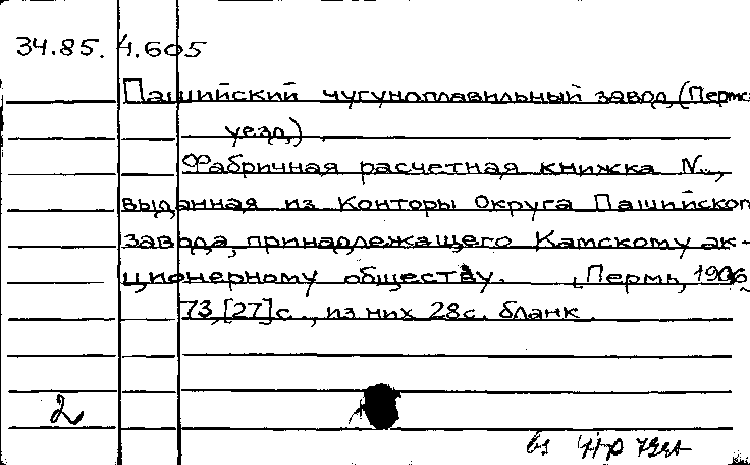 34.85. 4.605
Пашийский чугуноплавильный завод, (Пермс
уезд,)
Фабричная расчетная книжка N..,
выданная из Конторы Округа Пашийског
завода, принадлежащего Камскому ак-
ционерному обществу. [Пермь, 1906
73,[27]с., из них 28с. бланк.
2